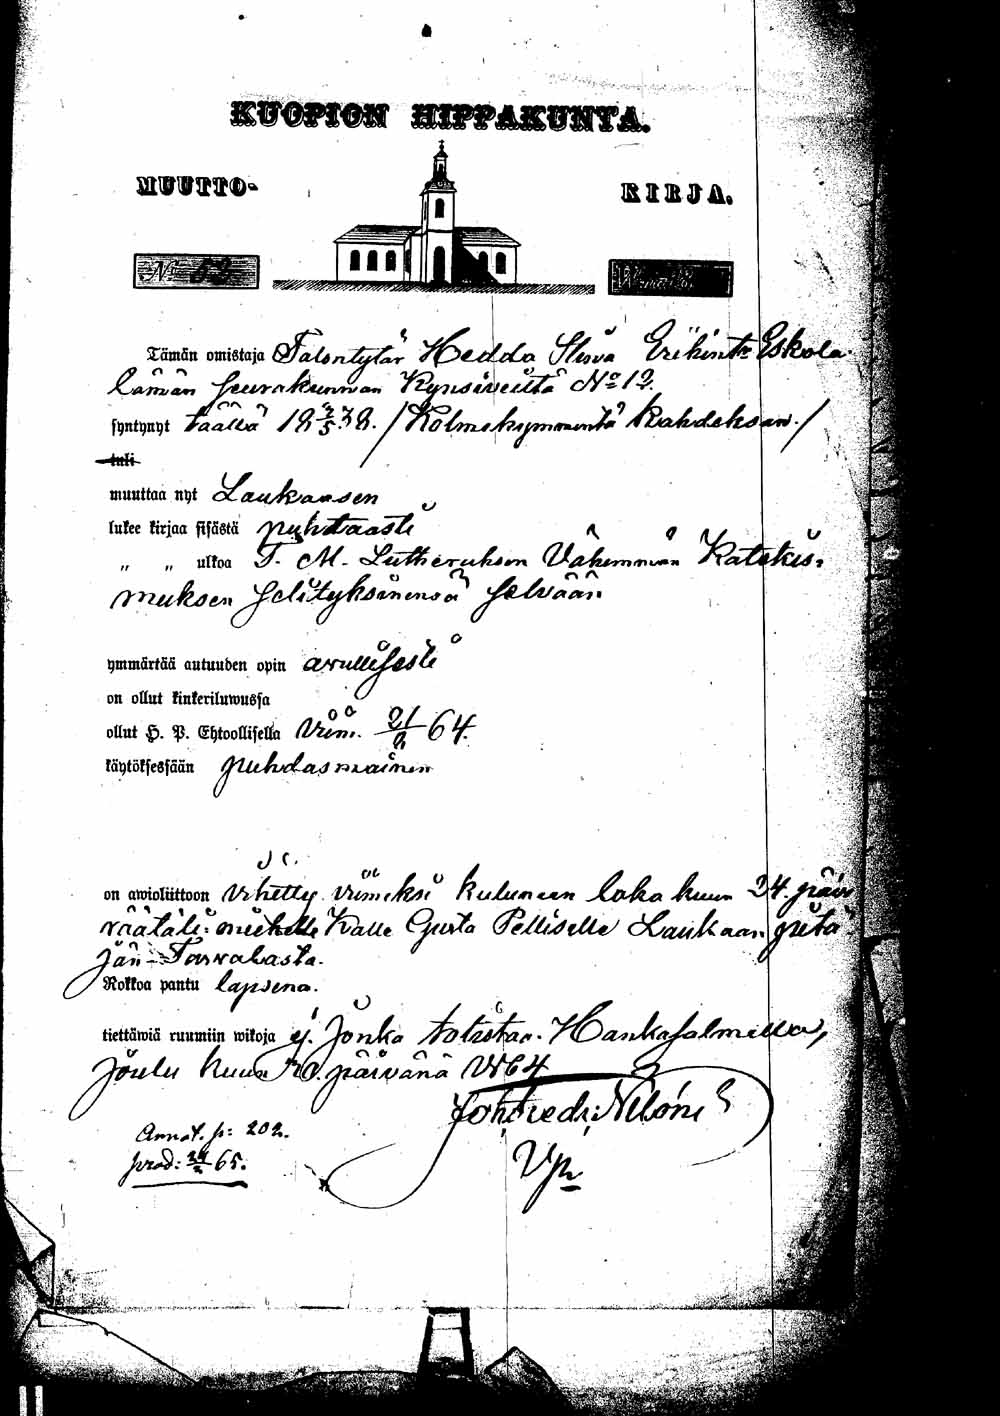 KUOPION HIPPAKUNTA.
MUUTTO- KIRJA.
No 53
Tämän omistaja Talontytär Hedda Stiva Erikintr Eskola
tämän seurakunnan Kynsiveittä No 12.
syntynyt täällä 18 38. / Kolmekymmentä kahdeksan. /
tuli
muuttaa nyt Laukaasen
lukee kirjaa sisästä puhtaasti
„ „ ulkoa T. M. Lutheruksen Vähemmän Katekis=
muksen selityksinensä selvään
ymmärtää autuuden opin avullisesti
on ollut kinkeriluwussa
ollut H. P. Ehtoollisella Viim. 64.
käytöksessään puhdasmainen
on awioliittoon vihitty viimeksi kuluneen loka kuun 24. päiv
räätäli miehelle Kalle Gusta Pelliselle Laukaan pitä
jän Tarvalasta.
Rokkoa pantu lapsena.
tiettäwiä ruumiin wikoja ej. Jonka totistaa. Hankasalmella,
Joulu kuun päivänä 1864
Joh: Fredr: Nilsoni
Vpr
Annot. p: 202.
prod: 65.